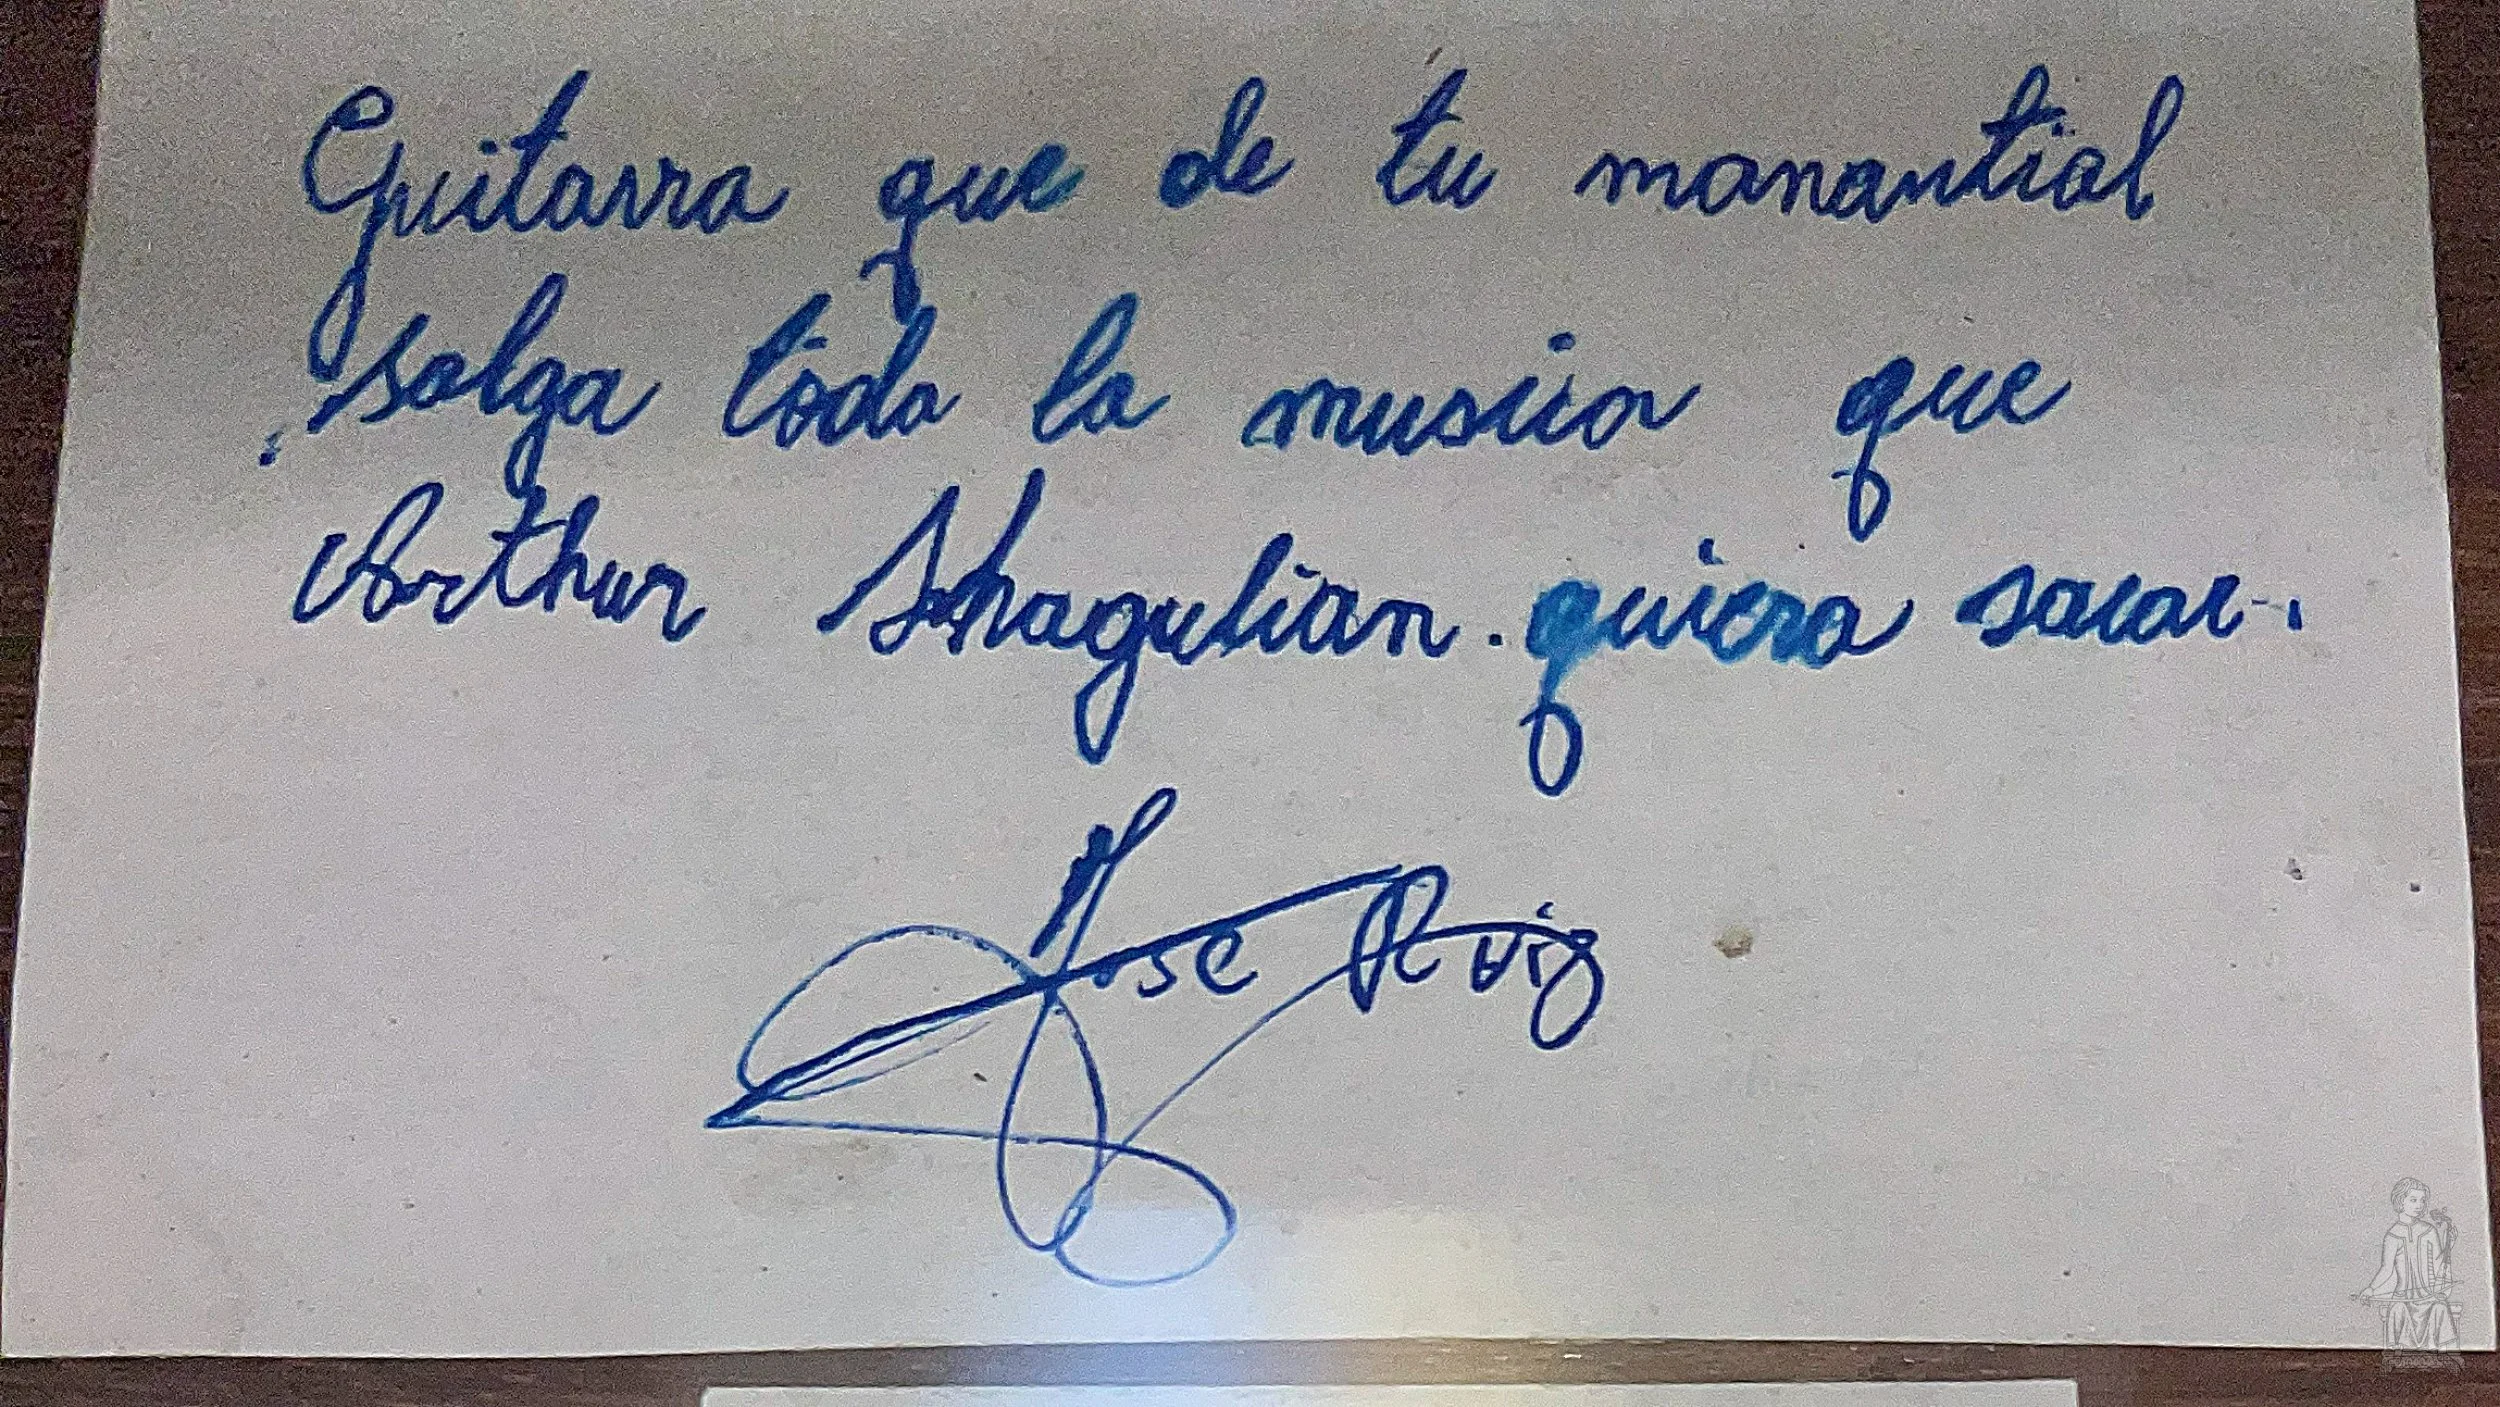 Guitarra que de tu manantial
salga toda la musica que
Arthur Shagulian. quiera sacar..
Jose Ruiz